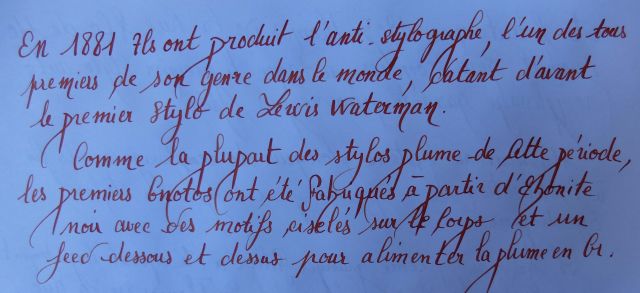 En 1881 Ils ont produit l'anti-stylographe, l'un des tous
premiers de son genre dans le monde, datant d'avant
le premier stylo de Lewis Waterman.
Comme la plupart des stylos plume de cette période,
les premiers Onotos ont été fabriqués à partir d'Ebonite
noir avec des motifs ciselés sur le corps et un
feed dessous et dessus pour alimenter la plume en or.